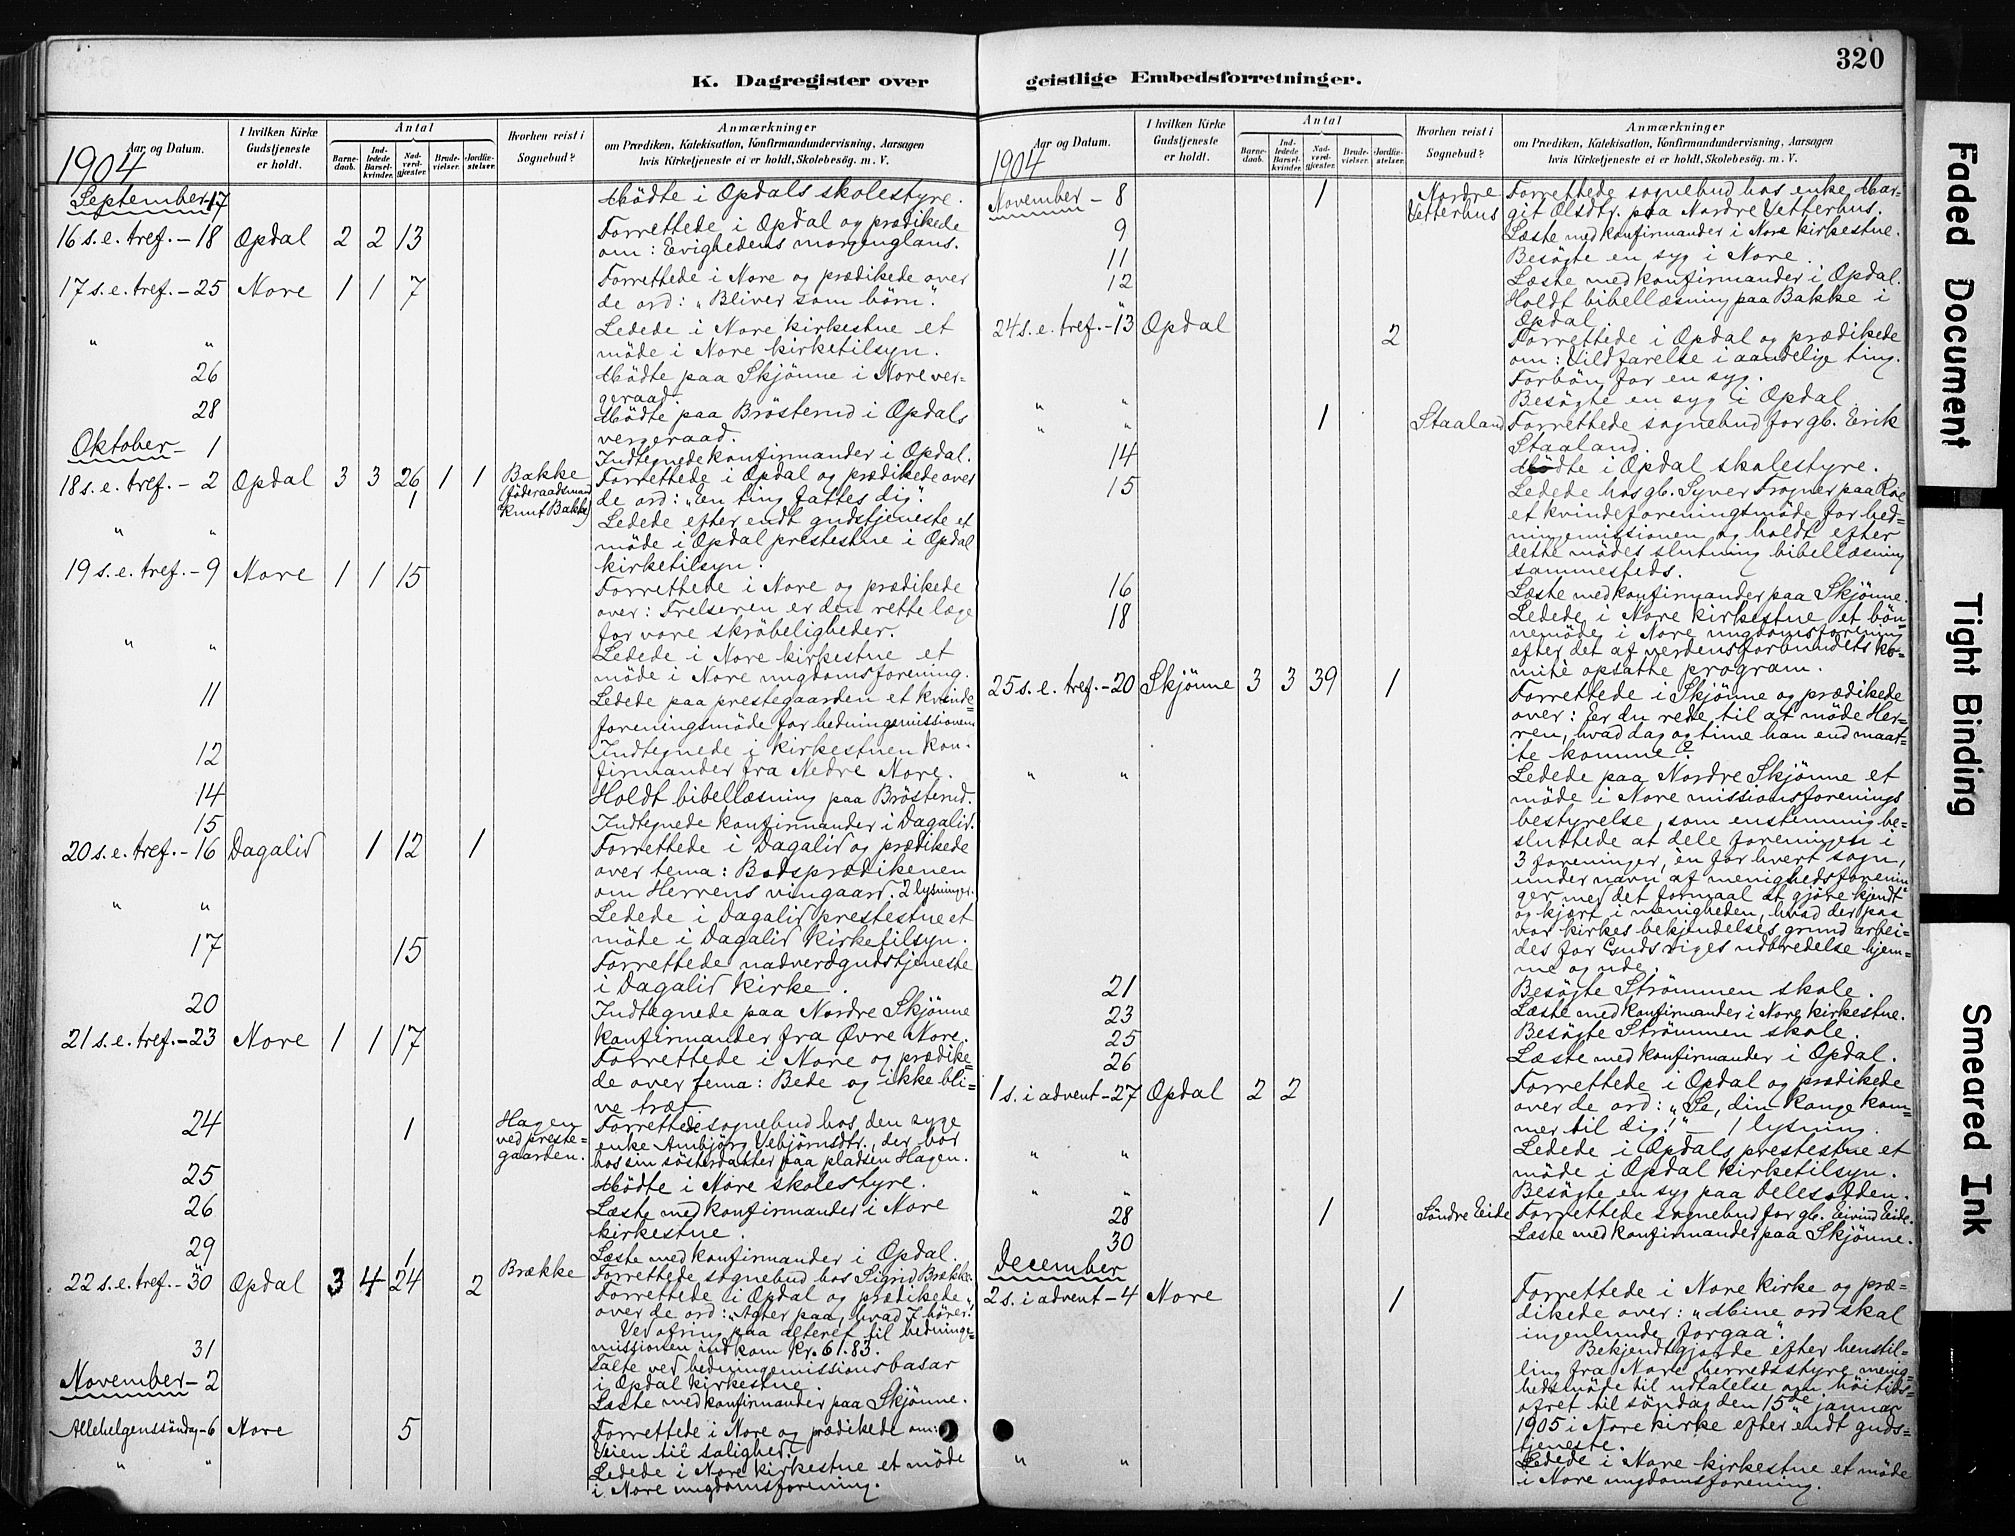 320
K. Dagregister over
geistlige Embedsforretninger.
Aar og Datum.
I hvilken Kirke
Gudstjeneste
er holdt.
Antal
Barne-
daab.
Ind-
ledede
Barsel-
kvinder.
Nad-
verd-
gjester.
Brude-
vielser.
Jordfæ-
stelser.
Hvorhen reist i
Sognebud?
Anmærkninger
om Prædiken, Katekisation, Konfirmandundervisning, Aarsagen
hvis Kirketjeneste ei er holdt, Skolebesøg. m. V.
1904
September 17 Mödte i Opdals skolestyre.
16 s. e. tref. - 18 Opdal 2 2 13 Forrettede i Opdal og prædikede
om: Evighedens morgenglans.
17 s. e. tref. - 25 Nore 1 1 7 Forrettede i Nore og prædikede over
de ord: "Bliver som börn".
" " Ledede i Nore kirkestue et
möde i Nore kirketilsyn.
26 Mödte paa Skjönne i Nore ver-
geraad.
28 Mödte paa Brösterud i Opdals
vergeraad.
Oktober - 1 Indtegnede konfirmander i Opdal.
18 s. e. tref. - 2 Opdal 3 3 26 1 1 Bakke Forrettede i Opdal og prædikede over
1 (föderaadsmand
Knut Bakke) de ord: "en ting fattes dig".
" " Ledede efter endt gudstjeneste et
möde i Opdal prestestue i Opdal
kirketilsyn.
19 s. e. tref. - 9 Nore 1 1 15 Forrettede i Nore og prædikede
over: Frelseren er den rette læge
for vore skröbeligheder.
" " Ledede i Nore kirkestue et
möde i Nore ungdomsforening.
11 Ledede paa prestegaarden et kvinde=
foreningsmöde for hedningemissionen
12 Indtegnede i kirkestuen kon-
firmander fra Nedre Nore.
14 Holdt bibellæsning paa Brösterud.
15 Indtegnede konfirmander i Dagalid.
20 s. e. tref. - 16 Dagalid 1 12 1 Forrettede i Dagalid og prædikede
over tema: Bodsprædikenen
om Herrens vingaard. 2 lysninger.
" " Ledede i Dagalid prestestue et
möde i Dagalid kirketilsyn.
17 15 Forrettede nadverdgudstjeneste
i Dagalid kirke.
20 Indtegnede paa Nordre Skjönne
konfirmander fra Øvre Nore.
21 s. e. tref. - 23 Nore 1 1 17 Forrettede i Nore og prædike=
de over tema: Bede og ikke bli-
ve træt.
24 1 Hagen
ved preste=
gaarden. Forrettede sognebud hos den syge
enke Ambjörg Vebjörnsdtr., der bor
hos sin sösterdatter paa pladsen Hagen.
25 Mödte i Nore skolestyre.
26 Læste med konfirmander i Nore
kirkestue.
29 Læste med konfirmander i Opdal.
" 1 Brække Forrettede sognebud hos Sigrid Brække.
22 s. e. tref. - 30 Opdal 3 4 24 2 Forrettede i Opdal og prædikede
over de ord: "Agter paa, hvad I hörer!"
Ved ofring paa alteret til hedninge=
missionen indkom Kr. 61.83.
31 Talte ved hedningemissionsbasar
i Opdal kirkestue.
November - 2 Læste med konfirmander paa Skjönne.
Allehelgenssöndag - 6 Nore 5 Forrettede i Nore og prædikede om:
Veien til salighed.
" " Ledede i Nore kirkestue et möde
i Nore ungdomsforening.
Aar og Datum.
I hvilken Kirke
Gudstjeneste
er holdt.
Antal
Barne-
daab.
Ind-
ledede
Barsel-
kvinder.
Nad-
verd-
gjester.
Brude-
vielser.
Jordfæ-
stelser.
Hvorhen reist i
Sognebud?
Anmærkninger
om Prædiken, Katekisation, Konfirmandundervisning, Aarsagen
hvis Kirketjeneste ei er holdt, Skolebesøg. m. V.
1904
November - 8 1 Nordre
Vetterhus Forrettede sognebud hos enke Mar-
git Olsdtr. paa Nordre Vetterhus.
9 Læste med konfirmander i Nore kirkestue.
11 Besögte en syg i Nore.
12 Læste med konfirmander i Opdal.
" Holdt bibellæsning paa Bakke i
Opdal
24 s. e. tref. - 13 Opdal 2 Forrettede i Opdal og prædikede
om: Vildfarelse i aandelige ting.
Forbön for en syg.
" " Besögte en syg i Opdal.
" " 1 Staaland Forrettede sognebud for gb. Erik
Staaland.
14 Mödte i Opdal skolestyre.
15 Ledede hos gb. Syver Frogner paa Roe
et kvindeforeningsmöde for hed=
ningemissionen og holdt efter
dette mödes slutning bibellæsning
sammesteds.
16 Læste med konfirmander paa Skjönne.
18 Ledede i Nore kirkestue et bön-
nemöde i Nore ungdomsforening
efter det af verdensforbundets ko-
mité opsatte program.
25 s. e. tref. - 20 Skjönne 3 3 39 1 Forrettede i Skjönne og prædikede
over: Er du rede til at möde Her-
ren, hvad dag og time han end maat-
te komme?
" " Ledede paa Nordre Skjönne et
möde i Nore missionsforenings
bestyrelse, som enstemmig be-
sluttede at dele foreningen i
3 foreninger, én for hvert sogn,
under navn af menighedsforenin-
ger med det formaal at gjöre kjendt
og kjært i menigheden, hvad der paa
vor kirkes bekjendelses grund arbei-
des for Guds riges udbredelse hjem-
me og ude.
21 Besögte Strömmen skole.
23 Læste med konfirmander i Nore kirkestue.
25 Besögte Strömmen skole.
26 Læste med konfirmander i Opdal.
1 s. i advent - 27 Opdal 2 2 Forrettede i Opdal og prædikede
over de ord: "Se, din konge kom-
mer til dig!" - 1 lysning.
" " Ledede i Opdals prestestue et
möde i Opdal kirketilsyn.
" " Besögte en syg paa
28 1 Söndre Eide Forrettede sognebud for gb. Eivind Eide.
30 Læste med konfirmander paa Skjönne.
December
2 s. i advent - 4 Nore 1 Forrettede i Nore kirke og præ=
dikede over: "Mine ord skal
ingenlunde forgaa".
Bekjendtgjorde efter henstil-
ling fra Nore herredsstyre menig-
hedsmöde til udtalelse om höitids-
ofret til söndag den 15de januar
1905 i Nore kirke efter endt guds-
tjeneste.
" " Ledede i Nore kirkestue et möde
i Nore ungdomsforening.
Faded Document
Tight Binding
Smeared Ink